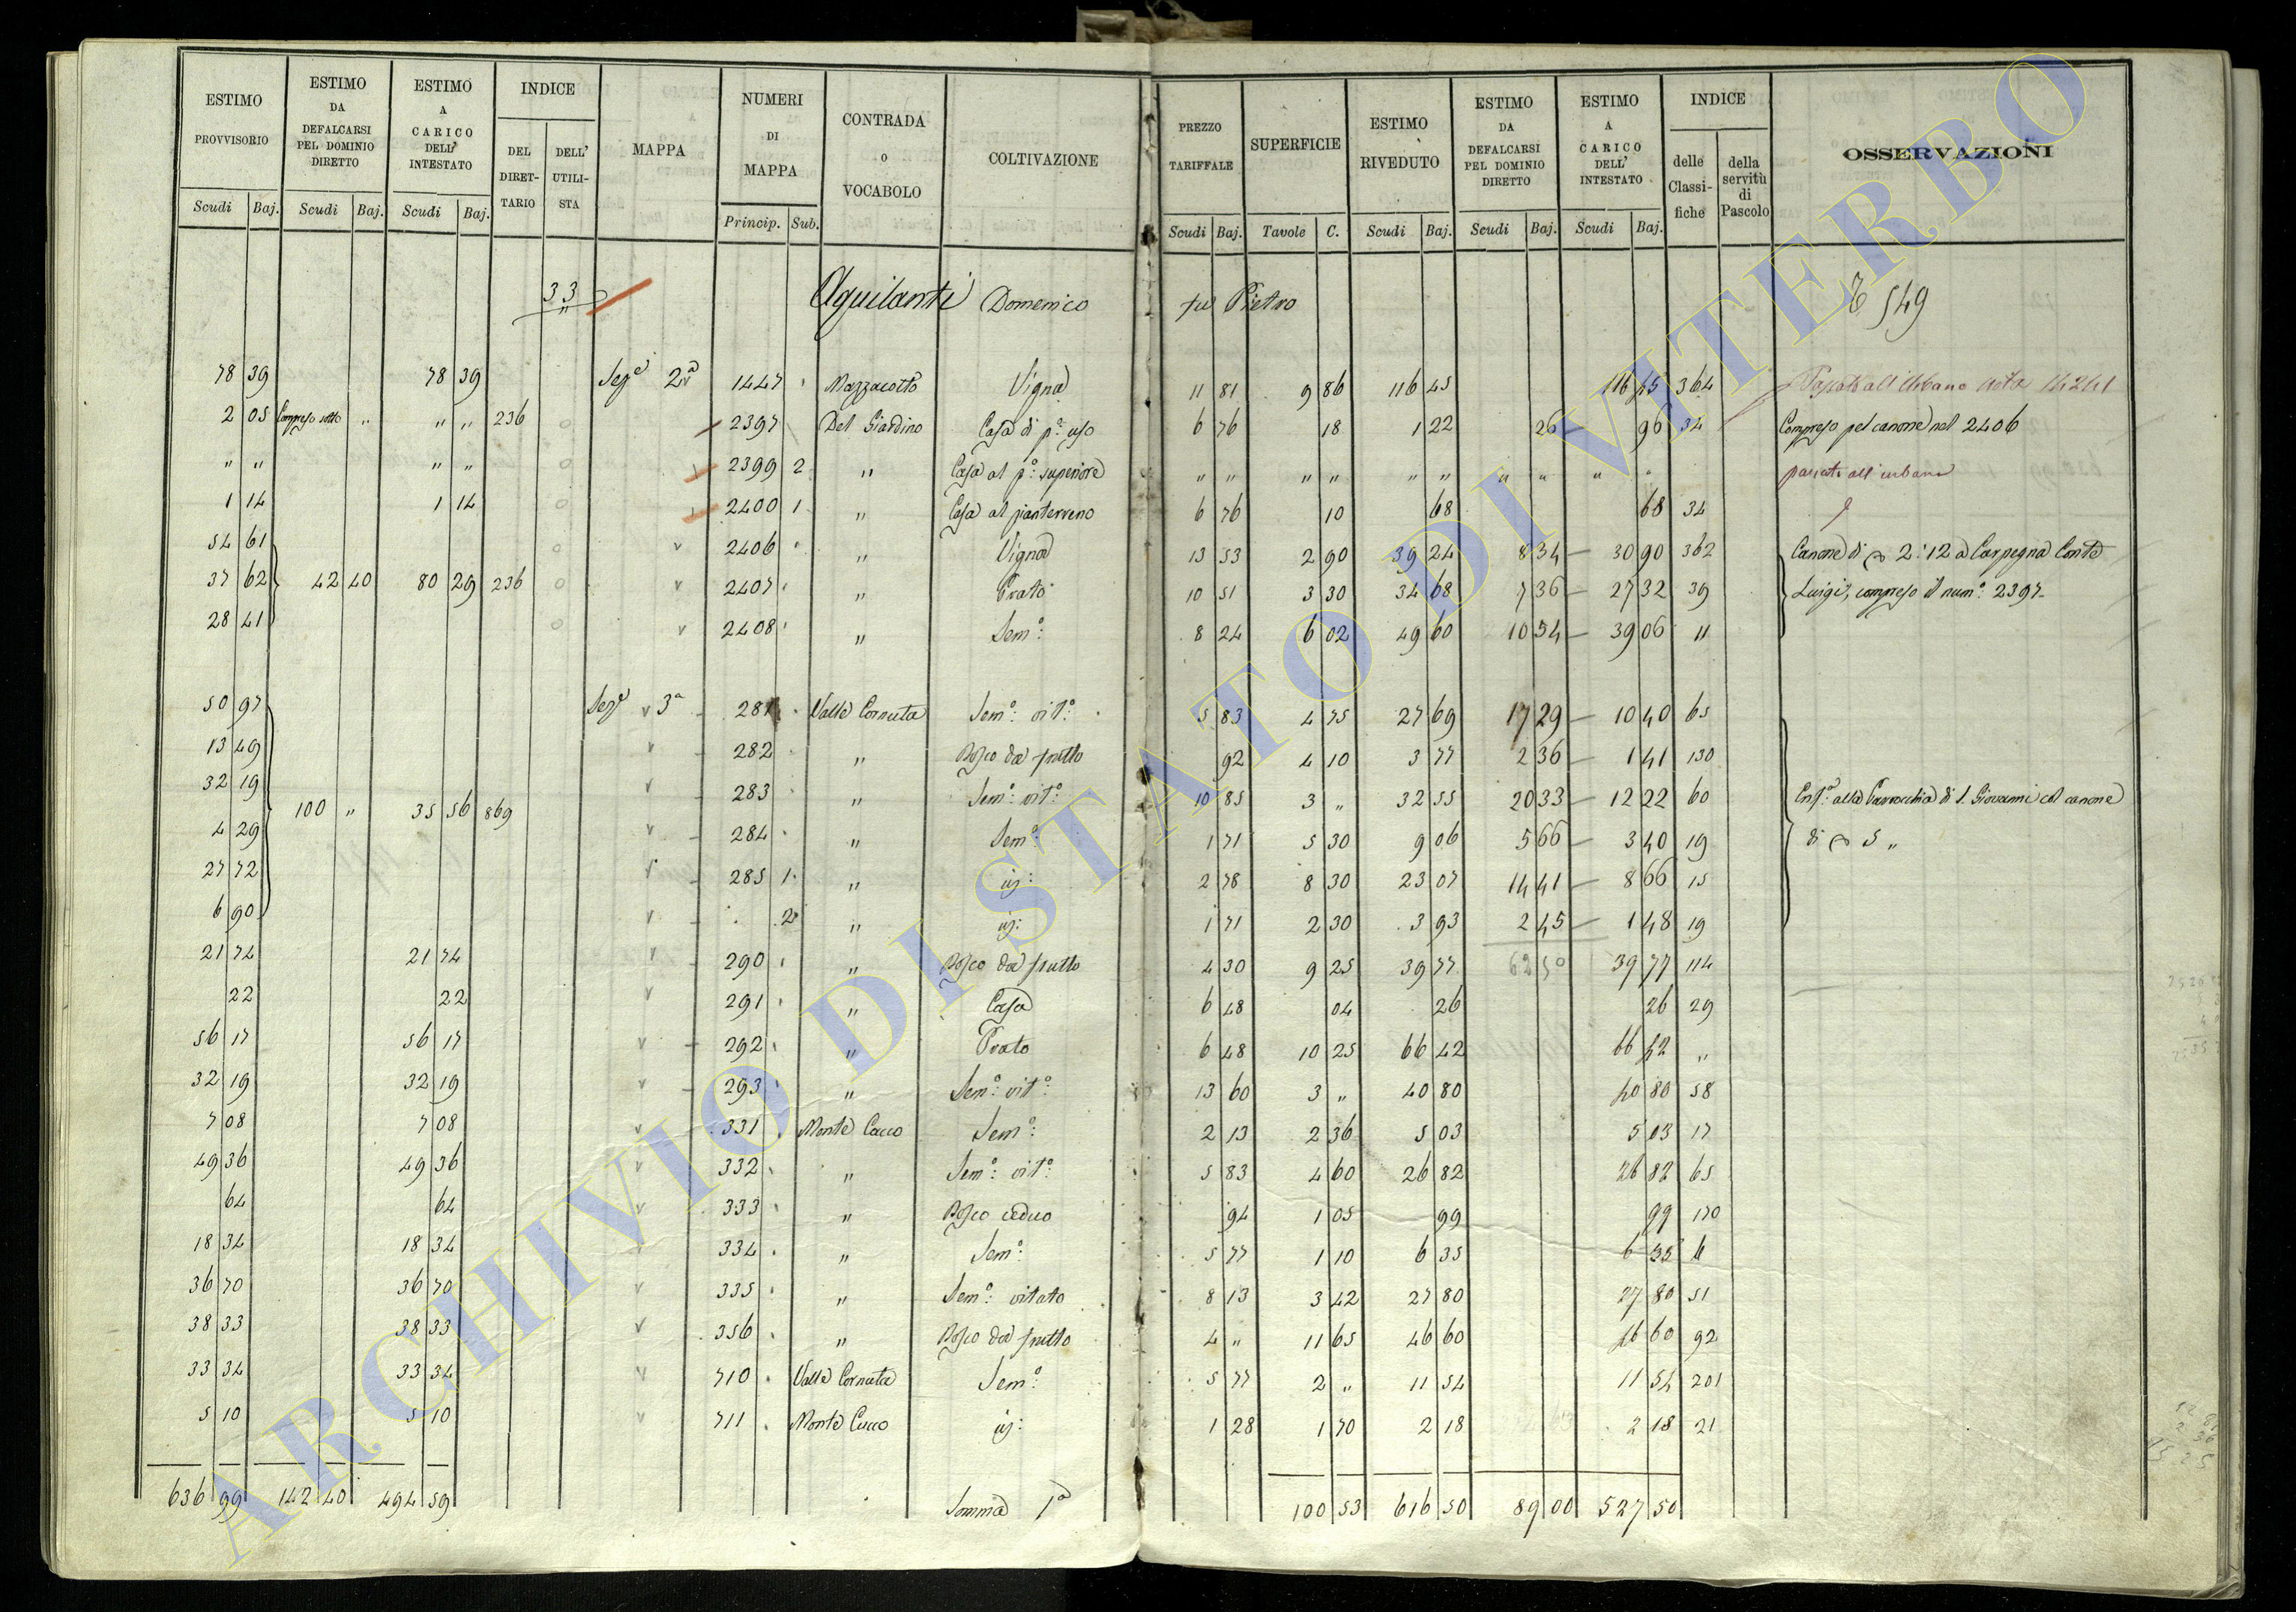 ESTIMO PROVVISORIO Scudi Baj. | ESTIMO DA DEFALCARSI PEL DOMINIO DIRETTO Scudi Baj. | ESTIMO A CARICO DELL' INTESTATO Scudi Baj. | INDICE DEL DIRETTARIO DELL' UTILISTA | MAPPA | NUMERI DI MAPPA Princip. Sub. | CONTRADA O VOCABOLO | COLTIVAZIONE | PREZZO TARIFFALE Scudi Baj. | SUPERFICIE Tavole C. | ESTIMO RIVEDUTO Scudi Baj. | ESTIMO DA DEFALCARSI PEL DOMINIO DIRETTO Scudi Baj. | ESTIMO A CARICO DELL' INTESTATO Scudi Baj. | INDICE delle Classifiche della servitù di Pascolo | OSSERVAZIONI
33 Aquilanti Domenico fu Pietro 549
78 39 78 39 Sezᵉ 2ª 1447 Mazzacotto Vigna 11 81 9 86 116 45 116 45 364 Passato all'Urbano
2 05 Compreso sotto " " " 236 2397 Del Giardino Casa di pº uso 6 76 18 1 22 26 96 34 Compreso pel canone nel 2406
" " " " 2399 2 " Casa al pº superiore " " " " " " " " " " passata all'urbano
1 14 1 14 2400 1 " Casa al pianterreno 6 76 10 68 68 34
54 61 2406 " Vigna 13 53 2 90 39 24 8 34 30 90 362 Canone di 2:12 a Carpegna Conte
37 62 42 40 80 29 236 2407 " Prato 10 51 3 30 34 68 7 36 27 32 39 Luigi, compreso il numº 2397
28 41 2408 " Semº: 8 24 6 02 49 60 10 54 39 06 11
50 97 Sezᵉ 3ª 281 Valle Cornuta Semº: vitº: 5 83 4 75 27 69 17 29 10 40 65
13 49 282 " Bosco da frutto 92 4 10 3 77 2 36 1 41 130
32 19 283 " Semº: vitº: 10 85 3 " 32 55 20 33 12 22 60 Enfº: alla Parrocchia di S. Giovanni col canone
100 " 35 56 869
4 29 284 " Semº: 1 71 5 30 9 06 5 66 3 40 19 di 5 "
27 72 285 1 " id: 2 78 8 30 23 07 14 41 8 66 15
6 90 2 " id: 1 71 2 30 3 93 2 45 1 48 19
21 74 21 74 290 " Bosco da frutto 4 30 9 25 39 77 62 50 39 77 114
22 22 291 " Casa 6 48 04 26 26 29
56 17 56 17 292 " Prato 6 48 10 25 66 42 66 42 "
32 19 32 19 293 " Semº: vitº: 13 60 3 " 40 80 40 80 58
7 08 7 08 331 Monte Cucco Semº: 2 13 2 36 5 03 5 03 17
49 36 49 36 332 " Semº: vitº: 5 83 4 60 26 82 26 82 65
64 64 333 " Bosco ceduo 94 1 05 99 99 170
18 34 18 34 334 " Semº: 5 77 1 10 6 35 6 35
36 70 36 70 335 " Semº: vitato 8 13 3 42 27 80 27 80 51
38 33 38 33 356 " Bosco da frutto 4 " 11 65 46 60 46 60 92
33 34 33 34 710 Valle Cornuta Semº: 5 77 2 " 11 54 11 54 201
5 10 5 10 711 Monte Cucco id: 1 28 1 70 2 18 2 18 21
636 99 142 40 494 59 Somma 1ª 100 53 616 50 89 00 527 50
ARCHIVIO DI STATO DI VITERBO